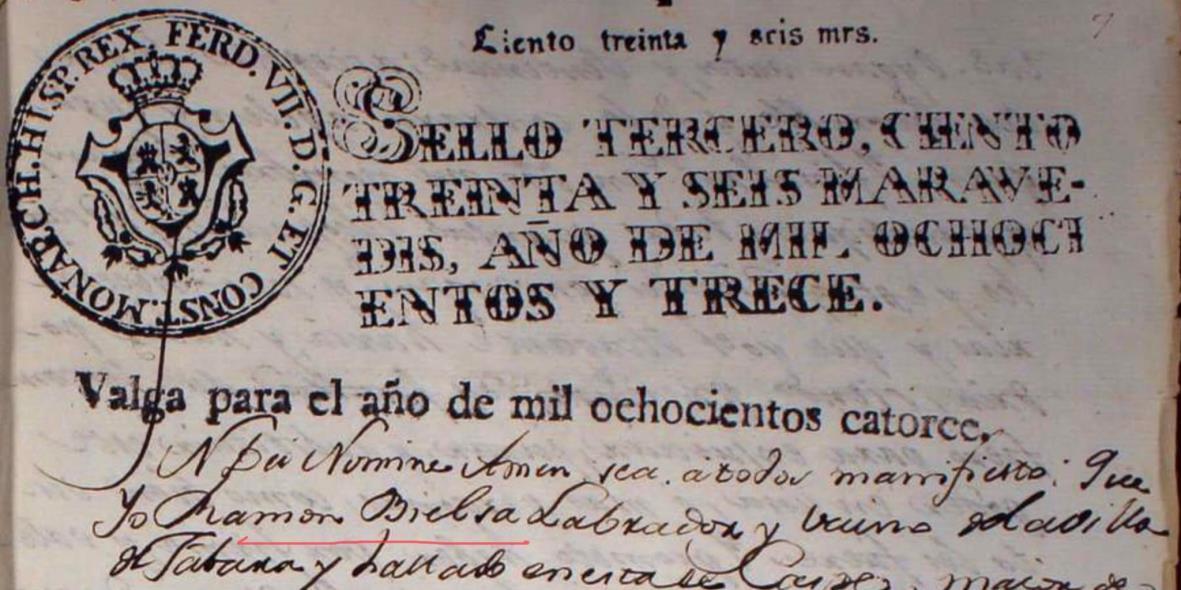 Ciento treinta y seis mrs.
7
HISP. REX FERD. VII. D. G. ET CONST. MONARCH.
SELLO TERCERO, CIENTO
TREINTA Y SEIS MARAVE-
DIS, AÑO DE MIL OCHOCI
ENTOS Y TRECE.
Valga para el año de mil ochocientos catorce.
IN Dei Nomine Amen sea a todos manifiesto: Que
Yo Ramon Bielsa Labrador y vecino de la villa
de Fabara y hallado en esta de Caspe, maior de